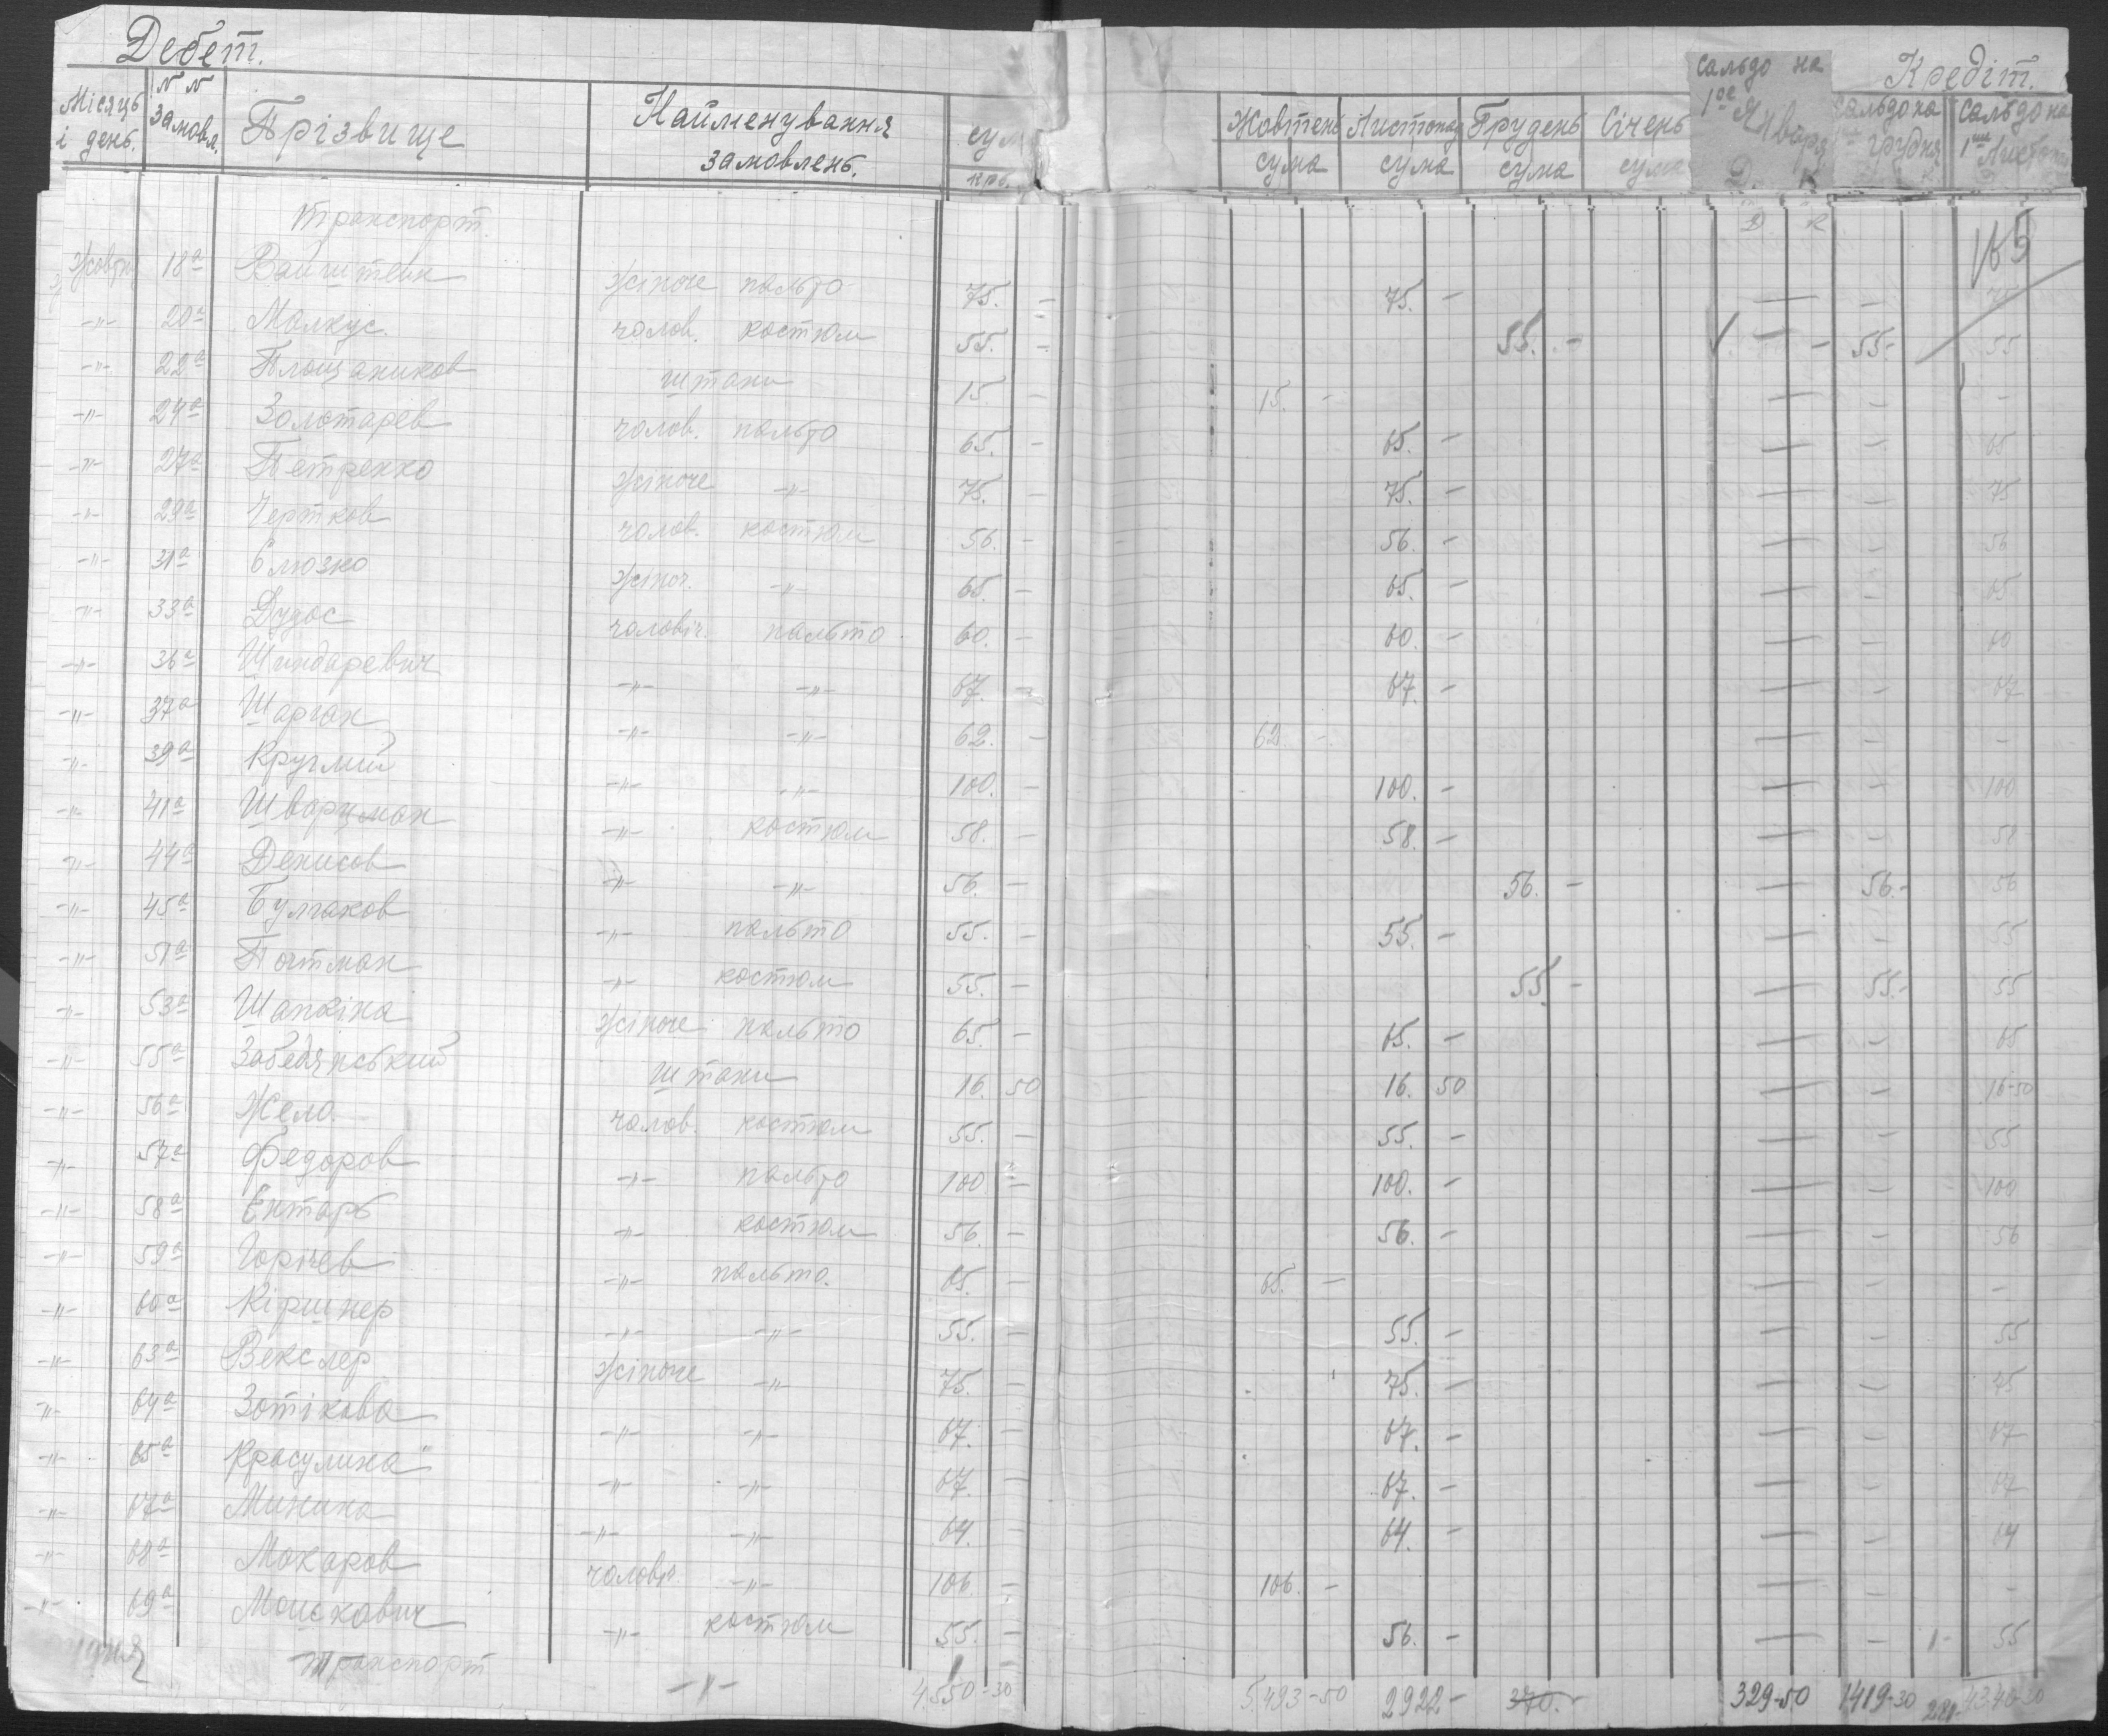 Дебет. Кредіт.
Місяць і день. N N замовл. Прізвище Найменування замовлень. сум крб. Жовтень сума Листопад сума Грудень сума Січень сума Сальдо на 1ое Января Д. К Сальдо на грудня Сальдо на 1ше Листоп
Транспорт. Д К 165
Жовтн 18а Вайнштейн жіноче пальто 75. – 75. – — – 75
-"- 20а Малкус. чолов. костюм 55. – 55. – — – 55- 55
-"- 22а Площаников штани 15. – 15. – — – –
-"- 24а Золотарев чолов. пальто 65. – 65. – — – 65
-"- 27а Петренко жіноче -"- 75. – 75. – — – 75
-"- 29а Чертков чолов. костюм 56. – 56. – — – 56
-"- 31а Слюзко жіноч. -"- 65. – 65. – — – 65
-"- 33а Дудос чоловіч. пальто 60. – 60. – — – 60
-"- 36а Шиндаревич -"- -"- 67. – 67. – — – 67
-"- 37а Шарган -"- -"- 62. – 62. – — – –
-"- 39а Круглий -"- -"- 100. – 100. – — – 100
-"- 41а Шварцман -"- костюм 58. – 58. – — – 58
-"- 44а Денисов -"- -"- 56. – 56. – — 56.- 56
-"- 45а Булгаков -"- пальто 55. – 55. – — – 55
-"- 51а Почтман -"- костюм 55. – 55. – — 55.- 55
-"- 53а Шапкіна жіноче пальто 65. – 65. – — – 65
-"- 55а Забедянський штани 16. 50 16. 50 — – 16-50
-"- 56а Жела. чолов. костюм 55. – 55. – — – 55
-"- 57а Федоров -"- пальто 100 – 100. – — – 100
-"- 58а Ентарь -"- костюм 56. – 56. – — – 56
-"- 59а Горічев -"- пальто. 65. – 65. – — – –
-"- 60а Кіршнер -"- -"- 55. – 55. – — – 55
-"- 63а Векслер жіноче -"- 75. – 75. – — – 75
-"- 64а Зотікова -"- -"- 67. – 67. – — – 67
-"- 65а Красулина -"- -"- 67. – 67. – — – 67
-"- 67а Минина -"- -"- 64. – 64. – — – 64
-"- 68а Макаров чоловіч -"- 106 – 106. – — – –
-"- 69а Моискович -"- костюм 55. – 56. – — – 1- 55
Транспорт -"- 4.550-30 5.493-50 2922- 370.- 329-50 1419-30 4340-30